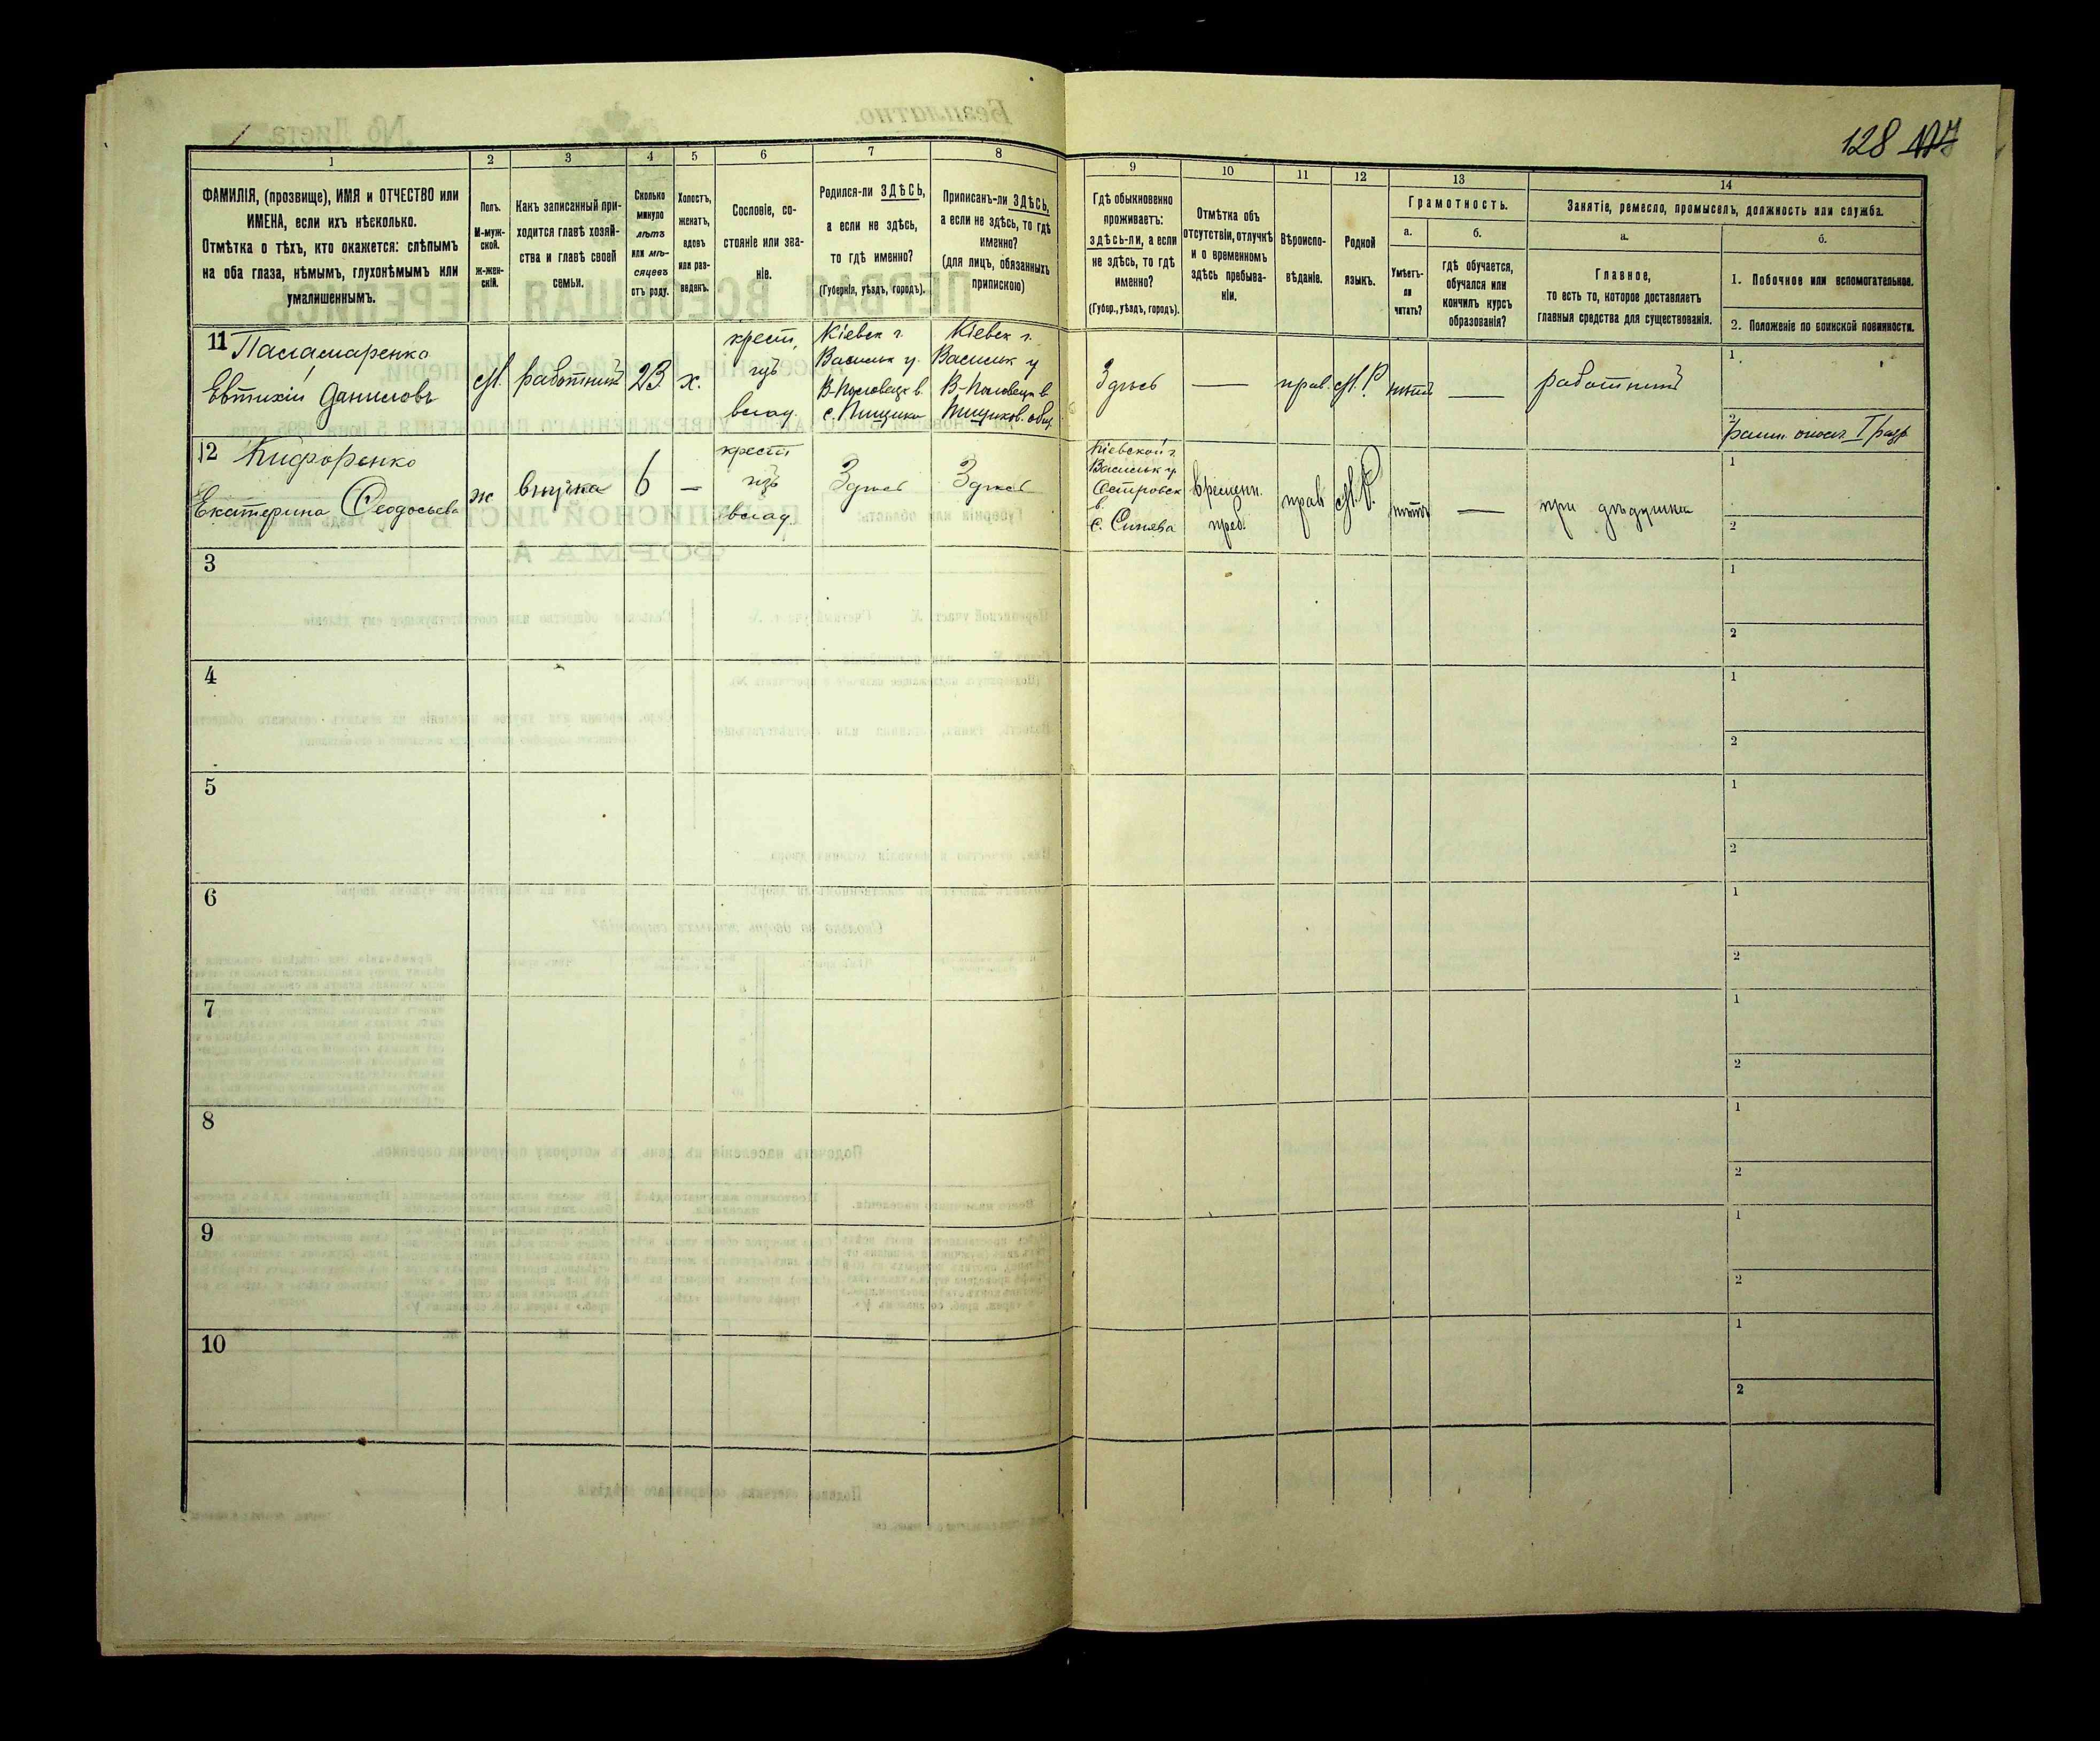 128
1 2 3 4 5 6 7 8 9 10 11 12 13 14
ФАМИЛІЯ, (прозвище), ИМЯ и ОТЧЕСТВО или
ИМЕНА, если ихъ нѣсколько.
Отмѣтка о тѣхъ, кто окажется: слѣпымъ
на оба глаза, нѣмымъ, глухонѣмымъ или
умалишеннымъ.
Полъ.
М-муж-
ской.
ж-жен-
скій.
Какъ записанный при-
ходится главѣ хозяй-
ства и главѣ своей
семьи.
Сколько
минуло
лѣтъ
или мѣ-
сяцевъ
отъ роду.
Холостъ,
женатъ,
вдовъ
или раз-
веденъ.
Сословіе, со-
стояніе или зва-
ніе.
Родился-ли ЗДѢСЬ,
а если не здѣсь,
то гдѣ именно?
(Губернія, уѣздъ, городъ).
Приписанъ-ли ЗДѢСЬ,
а если не здѣсь, то гдѣ
именно?
(для лицъ, обязанныхъ
припискою)
Гдѣ обыкновенно
проживаетъ:
здѣсь-ли, а если
не здѣсь, то гдѣ
именно?
(Губер., уѣздъ, городъ).
Отмѣтка объ
отсутствіи, отлучкѣ
и о временномъ
здѣсь пребыва-
ніи.
Вѣроиспо-
вѣданіе.
Родной
языкъ.
Грамотность.
а.
Умѣетъ-
ли
читать?
б.
гдѣ обучается,
обучался или
кончилъ курсъ
образованія?
Занятіе, ремесло, промыселъ, должность или служба.
а.
Главное,
то есть то, которое доставляетъ
главныя средства для существованія.
б.
1. Побочное или вспомогательное.
2. Положеніе по воинской повинности.
11 Паламаренко
Евтихій Даниловъ
М.
работникъ
23
х.
крест.
изъ
влад.
Кіевск г.
Васильк у.
В-Половецк в.
с. Пищики
Кіевск г.
Васильк у
В-Половецк в
Пищиков. общ.
Здѣсь
—
прав.
М. Р.
нѣтъ
—
работникъ
1
2
12 Никифоренко
Екатерина Ѳеодосьева
ж
внучка
6
—
крест
изъ
влад.
Здѣсь
Здѣсь
Кіевской г.
Васильк у.
Островск
в.
с. Синява
времен.
преб.
прав
М. Р.
нѣтъ
—
при дѣдушкѣ
1
2
3
1
2
4
1
2
5
1
2
6
1
2
7
1
2
8
1
2
9
1
2
10
1
2